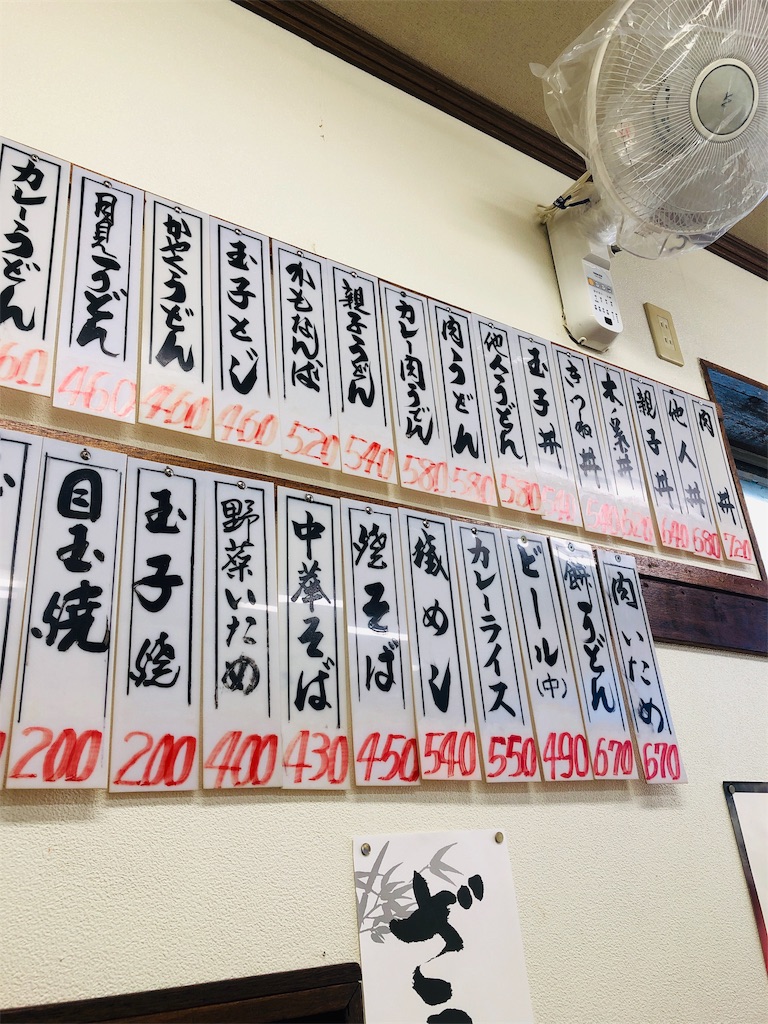 カレーうどん
60
月見うどん
460
かやくうどん
460
玉子とじ
460
かもなんば
520
親子うどん
540
カレー肉うどん
580
肉うどん
580
他人うどん
580
玉子丼
きつね丼
540
木ノ葉丼
620
親子丼
640
他人丼
680
肉丼
720
目玉焼
200
玉子焼
200
野菜いため
400
中華そば
430
焼そば
450
焼めし
540
カレーライス
550
ビール(中)
490
餅うどん
670
肉いため
670
ざ